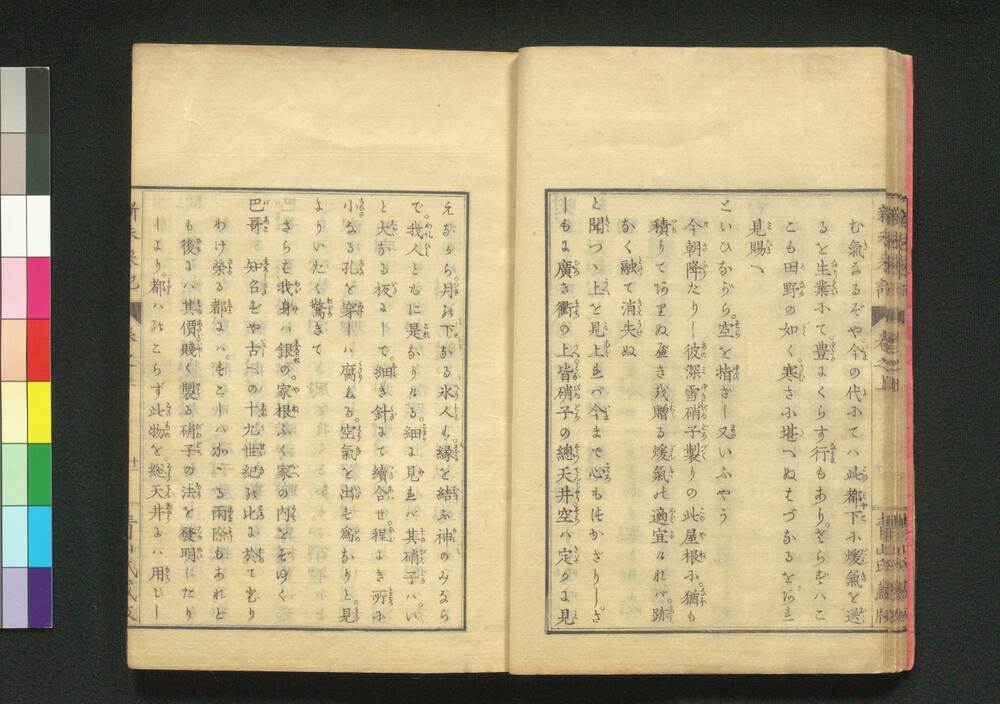 む氣なるぞや今の代にてハ此都下に煖氣を送
るを生業にて豊にくらす行もありさらずハこ
こも田野の如く寒さに堪へぬはづなるをあれ
見賜へ
といひながら空を指ざし又いふやう
今朝降たりし彼深雪硝子製りの此屋根に猶も
積りてありぬべきを贈る煖氣の適宜けれバ跡
かく融て消失ぬ
と聞つゝ上を見上れバ今まで心もつかざりしさ
しもに廣き衢の上皆硝子の總天井空ハ定かに見
えながら月の下なる氷人も縁を結ぶ神のみなら
で我人ともに是なりける細に見れバ其硝子ハい
と大なる板にして細き針にて續合せ程よき所に
小なる孔を穿しハ腐ある空氣を出す為なりと見
よりいたく驚きて
さらも我身ハ銀の家根ふく家の内をぞゆく
巴哥 知名ずや古への十九世紀の比に於てむり
わけ榮る都にハもとしハかゝる雨除もあれど
も後にハ其價賤く製る硝子の法を發明したり
しより都ハのこらず此物を総天井にハ用ひし
新未来記 卷之四
青山氏藏版